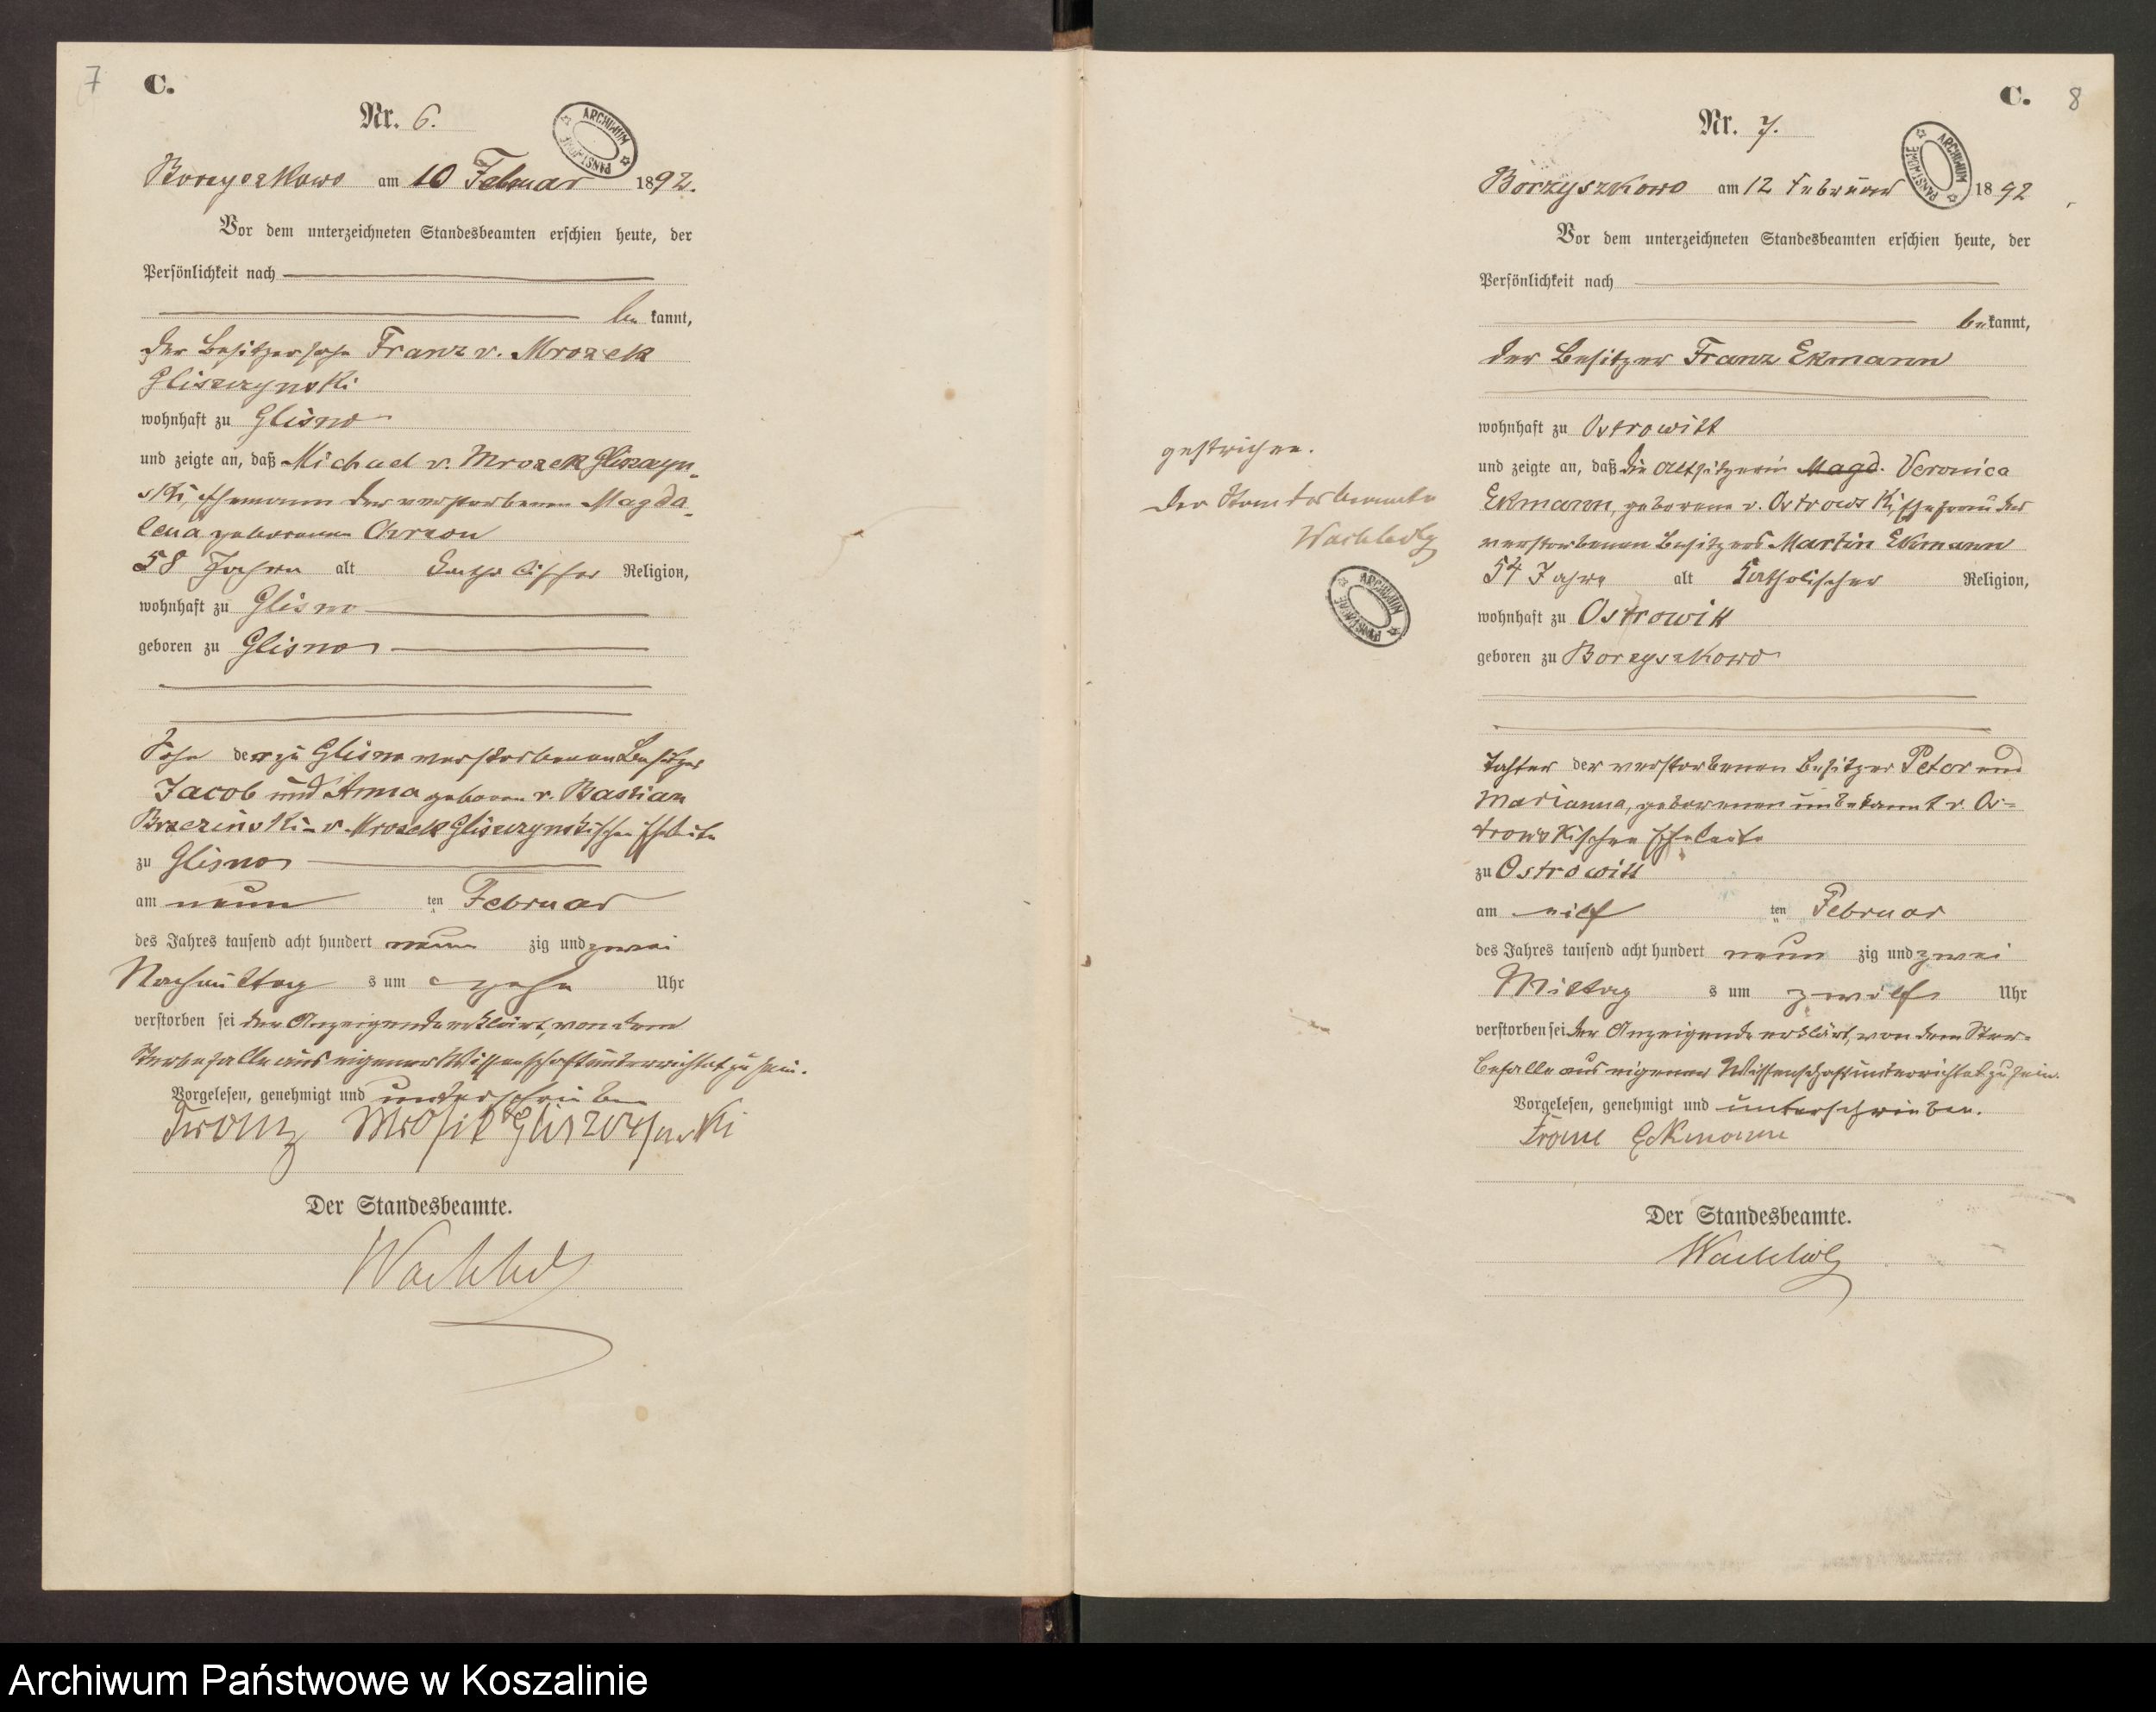 7
C.
Nr. 6.
ARCHIWUM PAŃSTWOWE
Borzyszkowo am 10 Februar 1892.
Vor dem unterzeichneten Standesbeamten erschien heute, der
Persönlichkeit nach
be kannt,
der Besitzersohn Franz v. Mrozek
Gliszczynski
wohnhaft zu Glisno
und zeigte an, daß Michael v. Mrozek Gliszczyn-
ski, Ehemann der verstorbenen Magda-
lena geborenen
58 Jahre alt katholischer Religion,
wohnhaft zu Glisno
geboren zu Glisno
Sohn der zu Glisno verstorbenen Besitzer
Jacob und Anna geboren v. Bastian
Brzezinski - v. Mrozek Gliszczynskischen Eheleute
zu Glisno
am neun ten Februar
des Jahres tausend acht hundert neun zig und zwei
Nachmittag s um zehn Uhr
verstorben sei der Anzeigende erklärt, von dem
Sterbefalle aus eigener Wissenschaft unterrichtet zu sein.
Vorgelesen, genehmigt und unterschrieben
Franz Mrosik Gliszczynski
Der Standesbeamte.
C.
8
Nr. 7.
ARCHIWUM PAŃSTWOWE
Borzyszkowo am 12 Februar 1892
Vor dem unterzeichneten Standesbeamten erschien heute, der
Persönlichkeit nach
bekannt,
der Besitzer Franz Ekmann
wohnhaft zu Ostrowitt
und zeigte an, daß die Altsitzerin Magd. Veronica
Ekmann, geborene v. Ostrowski, Ehefrau des
verstorbenen Besitzers Martin Ekmann
54 Jahre alt katholischer Religion,
wohnhaft zu Ostrowitt
geboren zu Borzyszkowo
Tochter der verstorbenen Besitzer Peter und
Marianna, geborenen unbekannt v. Os=
trowskischen Eheleute
zu Ostrowitt
am eilf ten Februar
des Jahres tausend acht hundert neun zig und zwei
Mittag s um zwölf Uhr
verstorben sei der Anzeigende erklärt, von dem Ster-
befalle aus eigener Wissenschaft unterrichtet zu sein.
Vorgelesen, genehmigt und unterschrieben.
Franc Eckmann
Der Standesbeamte.
gestrichen.
Der Standesbeamte
ARCHIWUM PAŃSTWOWE
Archiwum Państwowe w Koszalinie